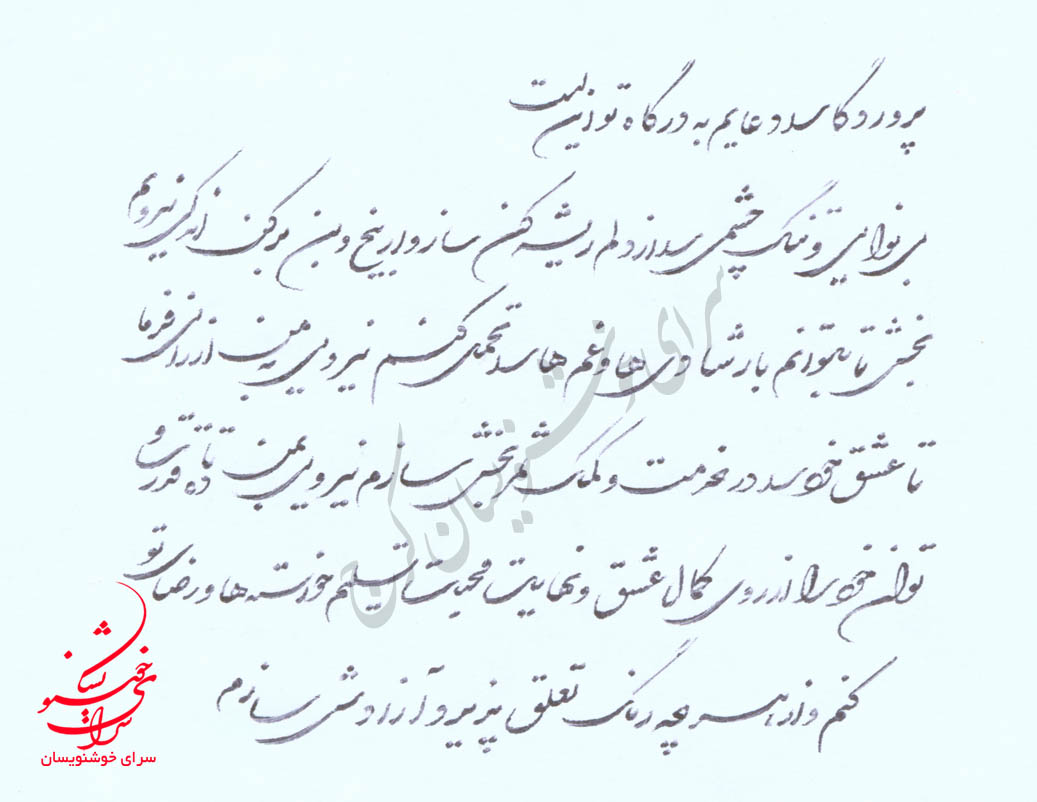 پروردگارا دعایم به درگاه تو این است
بی نوایی و تنگ چشمی را از دلم ریشه کن ساز و از بیخ و بن برکن اندکی نیرویم
بخش تا بتوانم بار شادی ها و غم ها را تحمل کنم نیرویی به من ارزانی فرما
تا عشق خود را در خدمت و کمک ثمربخش سازم نیرویی بمن ده تا قدرت و
توان خود را از روی کمال عشق و نهایت محبت تسلیم خواسته ها و رضای تو
کنم و از هر چه رنگ تعلق پذیرد آزادش سازم
سرای خوشنویسان
سرای خوشنویسان